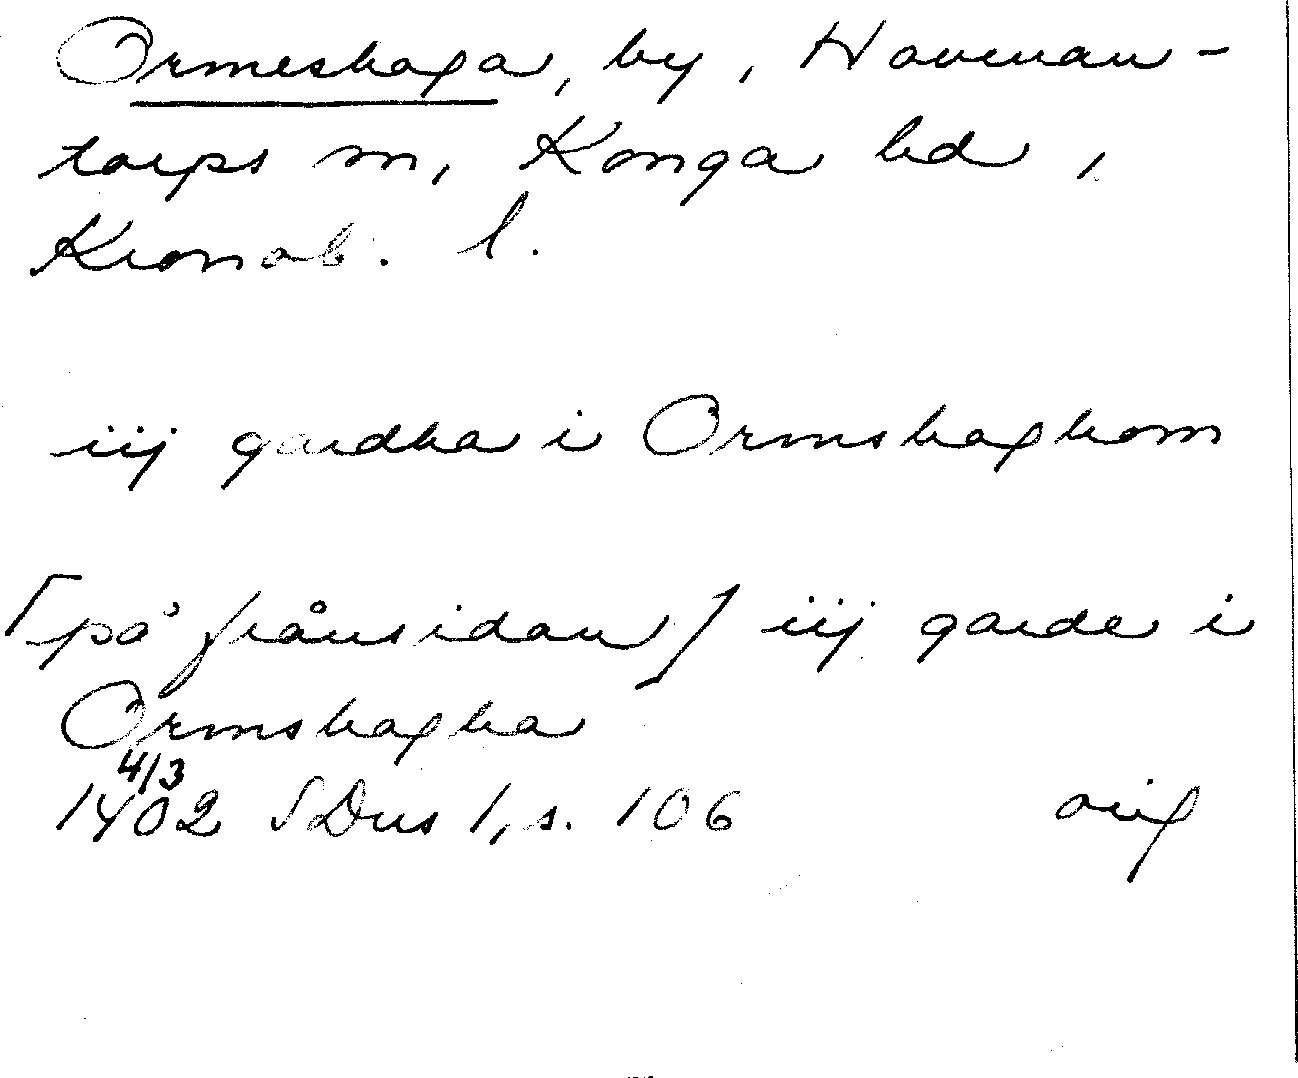 Ormeshaga, by, Hovman-
torps sn, Konga hd,
Kronob. l.
iij gardha i Ormshaghom
[på frånsidan] iij garde i
Ormshagha
4/3
1402 SDns 1, s. 106 orig